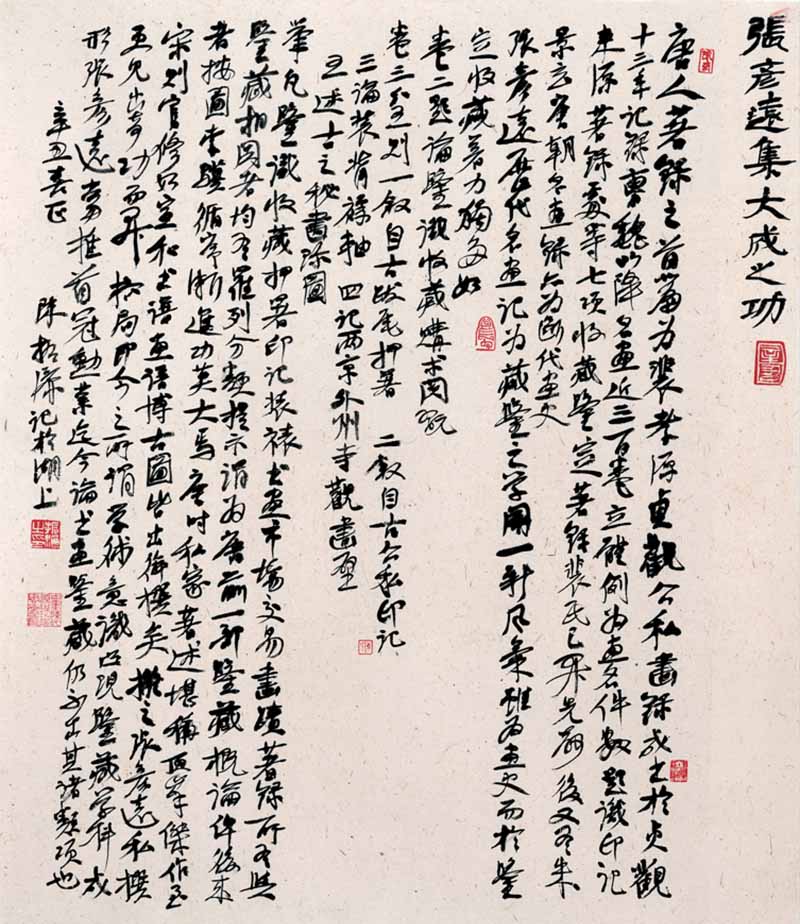 張彥遠集大成之功
唐人著錄之首篇為裴孝源貞觀公私畫錄成書於貞觀
十三年記錄曹魏以降名畫近三百卷立體例為畫名件數題識印記
來源著錄處等七項收藏鑒定著錄裴氏已開先路後又有朱
景玄唐朝名畫錄亦為斷代畫史
張彥遠歷代名畫記為藏鑒之學開一新風氣雖為畫史而於鑒
定收藏著力獨多如
卷二題論鑒識收藏購求閱玩
卷三分五則一敘自古跋尾押署 二敘自古公私印記
三論裝背褾軸 四記兩京外州寺觀畫壁
五述古之秘畫珍圖
舉凡鑒識收藏押署印記裝裱書畫市場交易畫蹟著錄所有與
鑒藏相關者均有羅列分類提示謂為唐前一部鑒藏概論併後來
者按圖索驥循序漸進功莫大焉唐時私家著述堪稱頂峯傑作至
宋則官修有宣和書譜畫譜博古圖皆出侍撰矣 擬之張彥遠私撰
互見出奇功而開格局即今之所謂學術意識凸現鑒藏學科成
形張彥遠當推首冠勳業迄今論書畫鑒藏仍不出其諸類項也
辛丑春正
陳振濂記於湖上